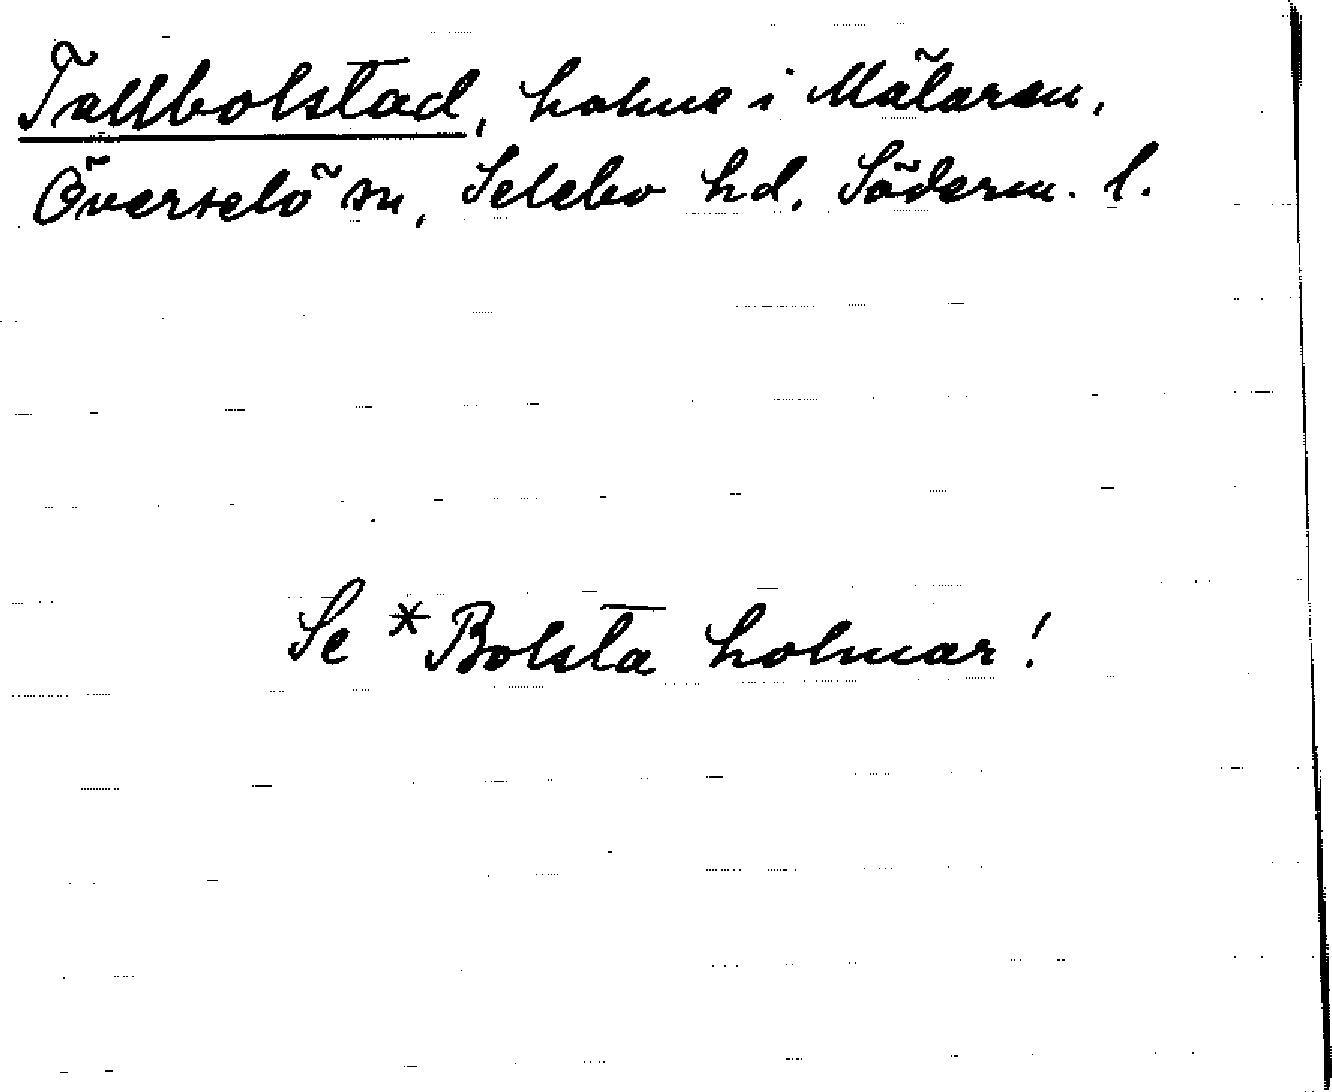 Tallbolstad, holme i Mälaren,
Överselö sn, Selebo hd. Söderm. l.
Se *Bolsta holmar!